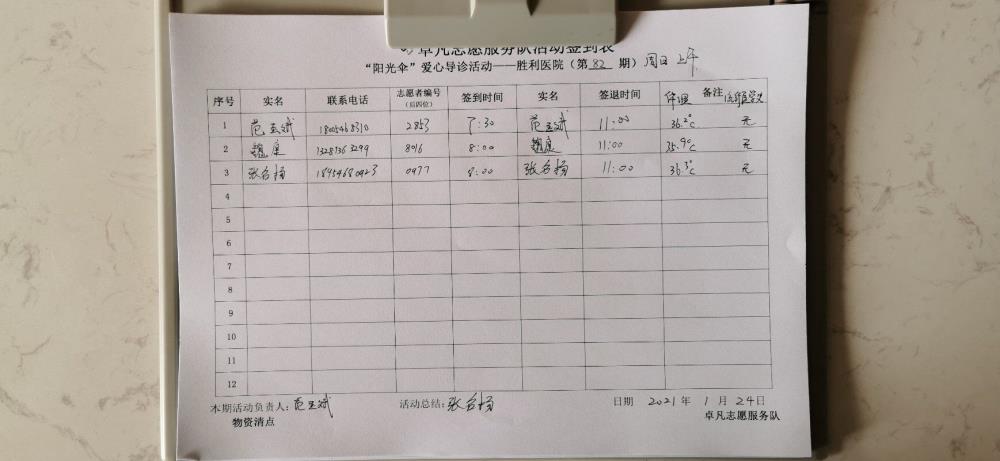 卓凡志愿服务队活动签到表
“阳光伞”爱心导诊活动——胜利医院（第 82 期）周日 上午
序号 实名 联系电话 志愿者编号（后四位） 签到时间 实名 签退时间 体温 备注
1 范玉斌 18005468310 2853 7:30 范玉斌 11:00 36.2℃ 无
2 魏康 8016 8:00 魏康 11:00 35.9℃ 无
3 张名扬 0977 8:00 张名扬 11:00 36.3℃ 无
4
5
6
7
8
9
10
11
12
本期活动负责人：范玉斌 活动总结：张名扬 日期 2021年 1月24日
物资清点 卓凡志愿服务队